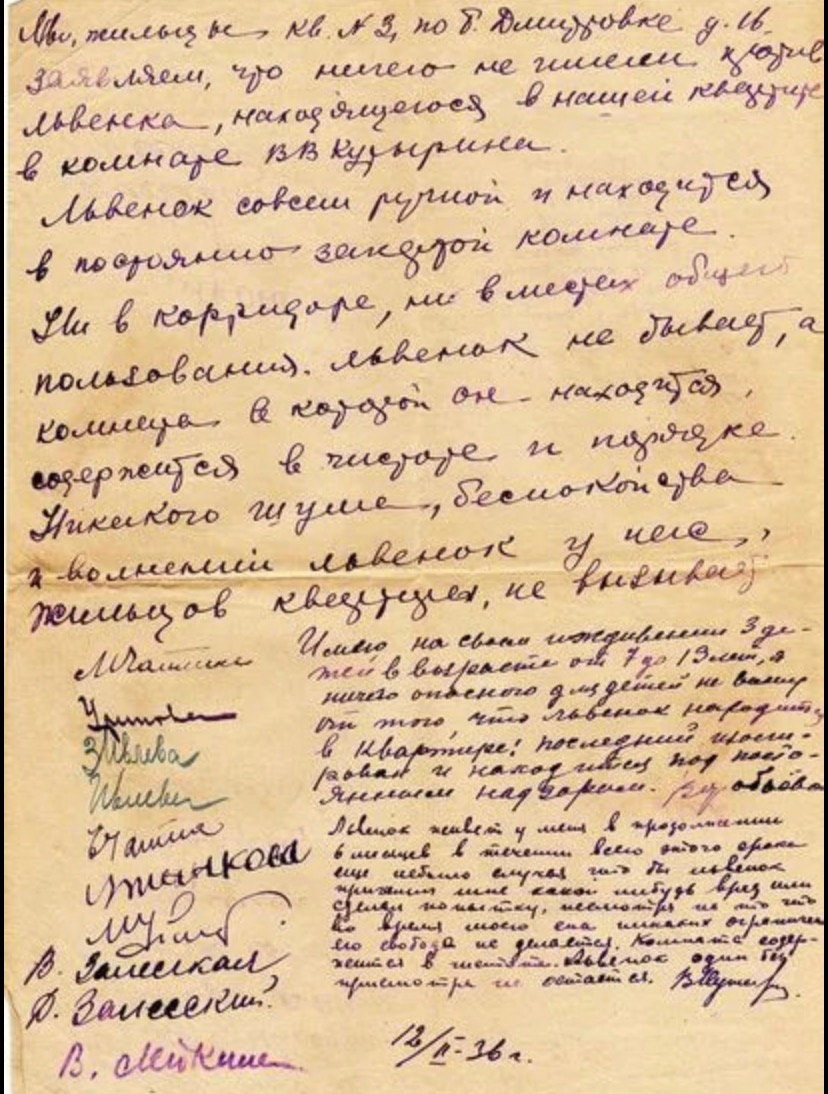 Мы, жильцы кв. N 3, по Б. Дмитровке д. 16
заявляем, что ничего не имеем против
львенка, находящегося в нашей квартире
в комнате ВВ Кутырина.
Львенок совсем ручной и находится
в постоянно закрытой комнате.
Ни в корридоре, ни в местах общего
пользования. львенок не бывает, а
комната в которой он находится,
содержится в чистоте и порядке.
Никакого шума, беспокойства
и волнений львенок у нас,
жильцов квартиры, не вызывает
Имею на своем иждивении 3 де-
тей в возрасте от 7 до 13 лет, и
ничего опасного для детей не вижу
от того что львенок находится
в квартире! последний
и находится под посто-
янным надзором.
Левенок живет у меня в продолжении
6 месяцев в течении всего этого срока
еще небыло случая что бы львенок
причинил мне какой нибудь вред или
сделал попытку, несмотря на то что
во время моего сна никаких ограничен
его свобода не делается. Комната содер-
жится в чистоте. Львенок один без
присмотра не остается.
В. Залесская
Д. Залесский.
12/II-36 г.